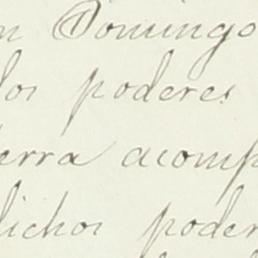 n Domingo
los poderes
erra acomp
dichos poder